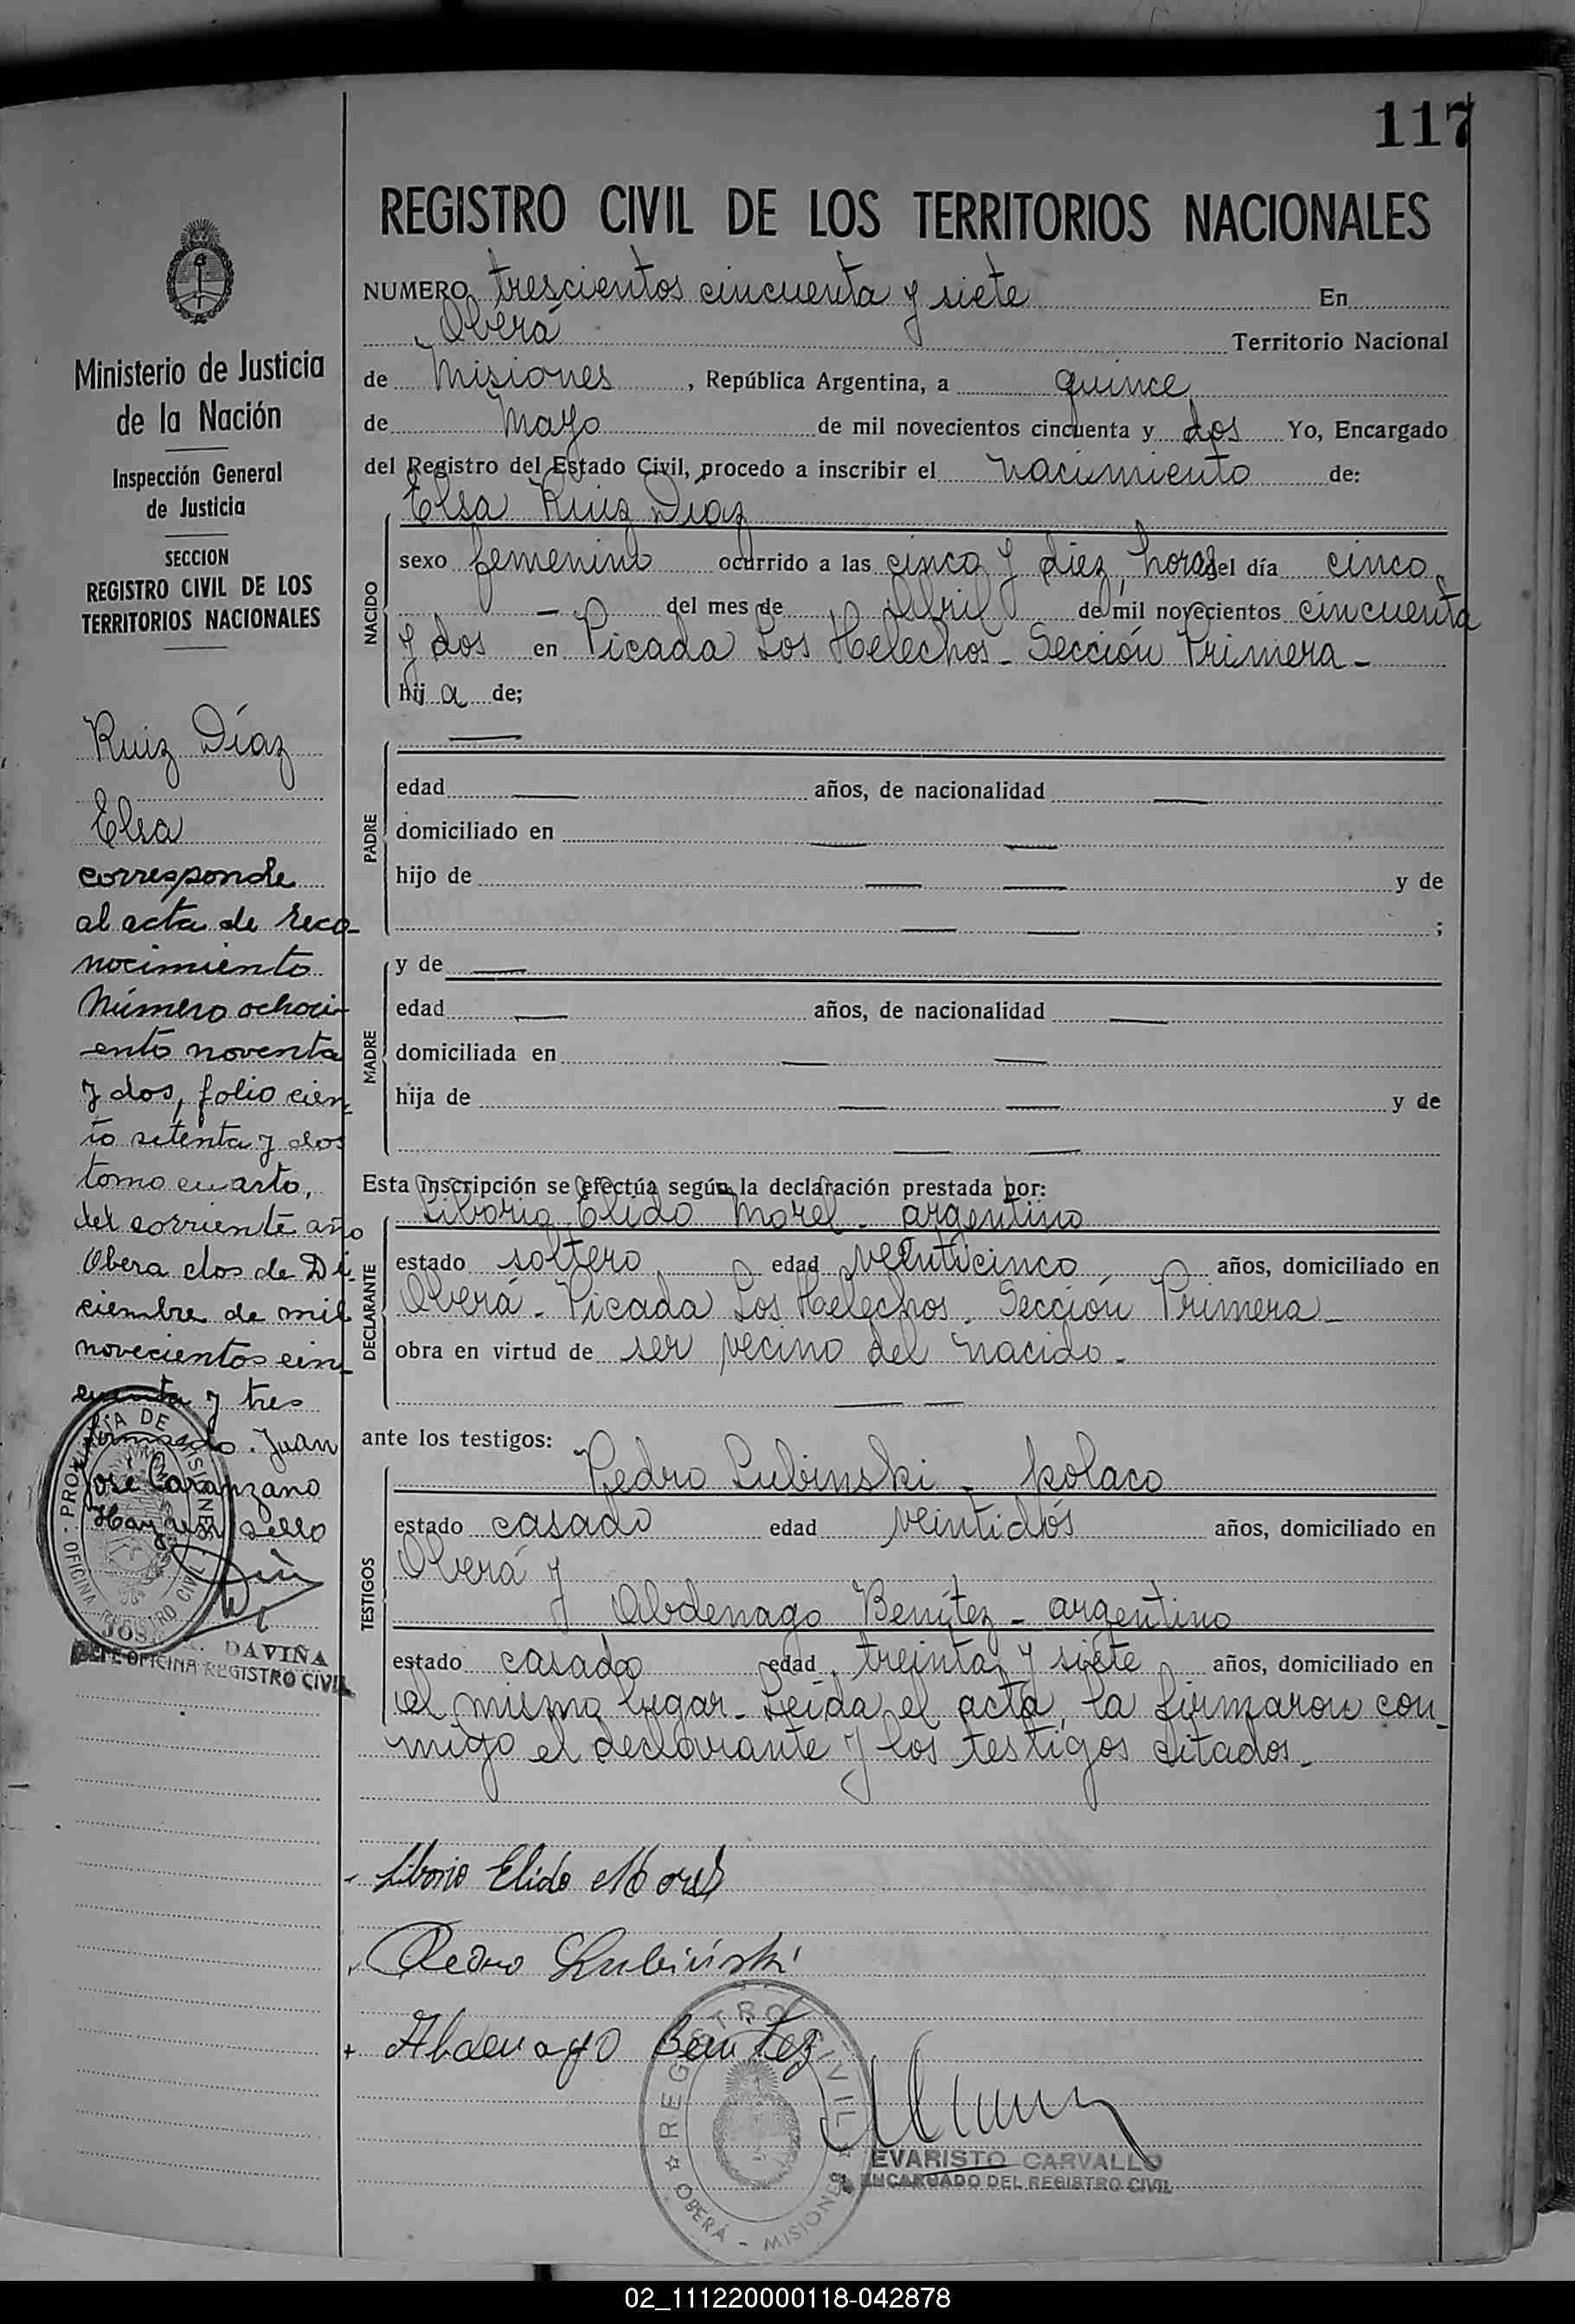 117
REGISTRO CIVIL DE LOS TERRITORIOS NACIONALES
NUMERO trescientos cincuenta y siete En
Oberá Territorio Nacional
de Misiones, República Argentina, a quince
de Mayo de mil novecientos cincuenta y dos Yo, Encargado
del Registro del Estado Civil, procedo a inscribir el nacimiento de:
Elsa Ruiz Díaz
NACIDO
sexo femenino ocurrido a las cinco y diez horas del día cinco
— del mes de Abril de mil novecientos cincuenta
y dos en Picada Los Helechos - Sección Primera -
hija de;
PADRE
—
edad — años, de nacionalidad —
domiciliado en — —
hijo de — — y de
— — ;
MADRE
y de —
edad — años, de nacionalidad —
domiciliada en — —
hija de — — y de
— —
Esta inscripción se efectúa según la declaración prestada por:
DECLARANTE
Liborio Elido Morel - argentino
estado soltero edad veinticinco años, domiciliado en
Oberá - Picada Los Helechos. Sección Primera -
obra en virtud de ser vecino del nacido -
— —
ante los testigos:
TESTIGOS
Pedro Lubinski - polaco
estado casado edad veintidós años, domiciliado en
Oberá y
Abdenago Benítez - argentino
estado casado edad treinta y siete años, domiciliado en
el mismo lugar - Leída el acta, la firmaron con-
migo el declarante y los testigos citados -
Liborio Elido Morel
Pedro Lubiński
Abdenago Benitez
REGISTRO CIVIL
OBERÁ - MISIONES
EVARISTO CARVALLO
ENCARGADO DEL REGISTRO CIVIL
Ministerio de Justicia
de la Nación
Inspección General
de Justicia
SECCION
REGISTRO CIVIL DE LOS
TERRITORIOS NACIONALES
Ruiz Díaz
Elsa
corresponde
al acta de reco-
nocimiento
Número ochoci-
ento noventa
y dos, folio cien-
to setenta y dos
tomo cuarto,
del corriente año
Obera dos de Di-
ciembre de mil
novecientos cin-
cuenta y tres
firmado. Juan
José Caranzano
Hay un sello
PROVINCIA DE MISIONES
OFICINA REGISTRO CIVIL
DAVIÑA
JEFE OFICINA REGISTRO CIVIL
02_111220000118-042878